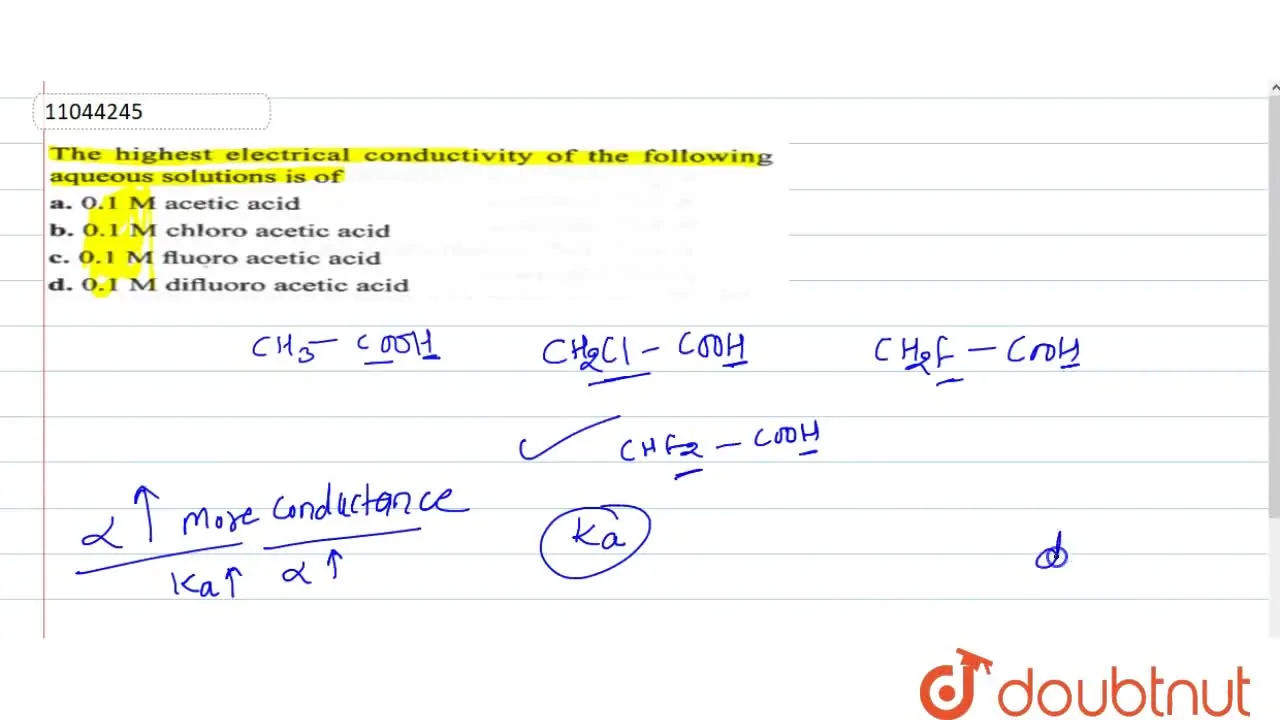 11044245
The highest electrical conductivity of the following
aqueous solutions is of
a. 0.1 M acetic acid
b. 0.1 M chloro acetic acid
c. 0.1 M fluoro acetic acid
d. 0.1 M difluoro acetic acid
CH3 — COOH CH2Cl — COOH CH2F — COOH
CHF2 — COOH
α ↑ More conductance
Ka
Ka ↑ α ↑
d
doubtnut